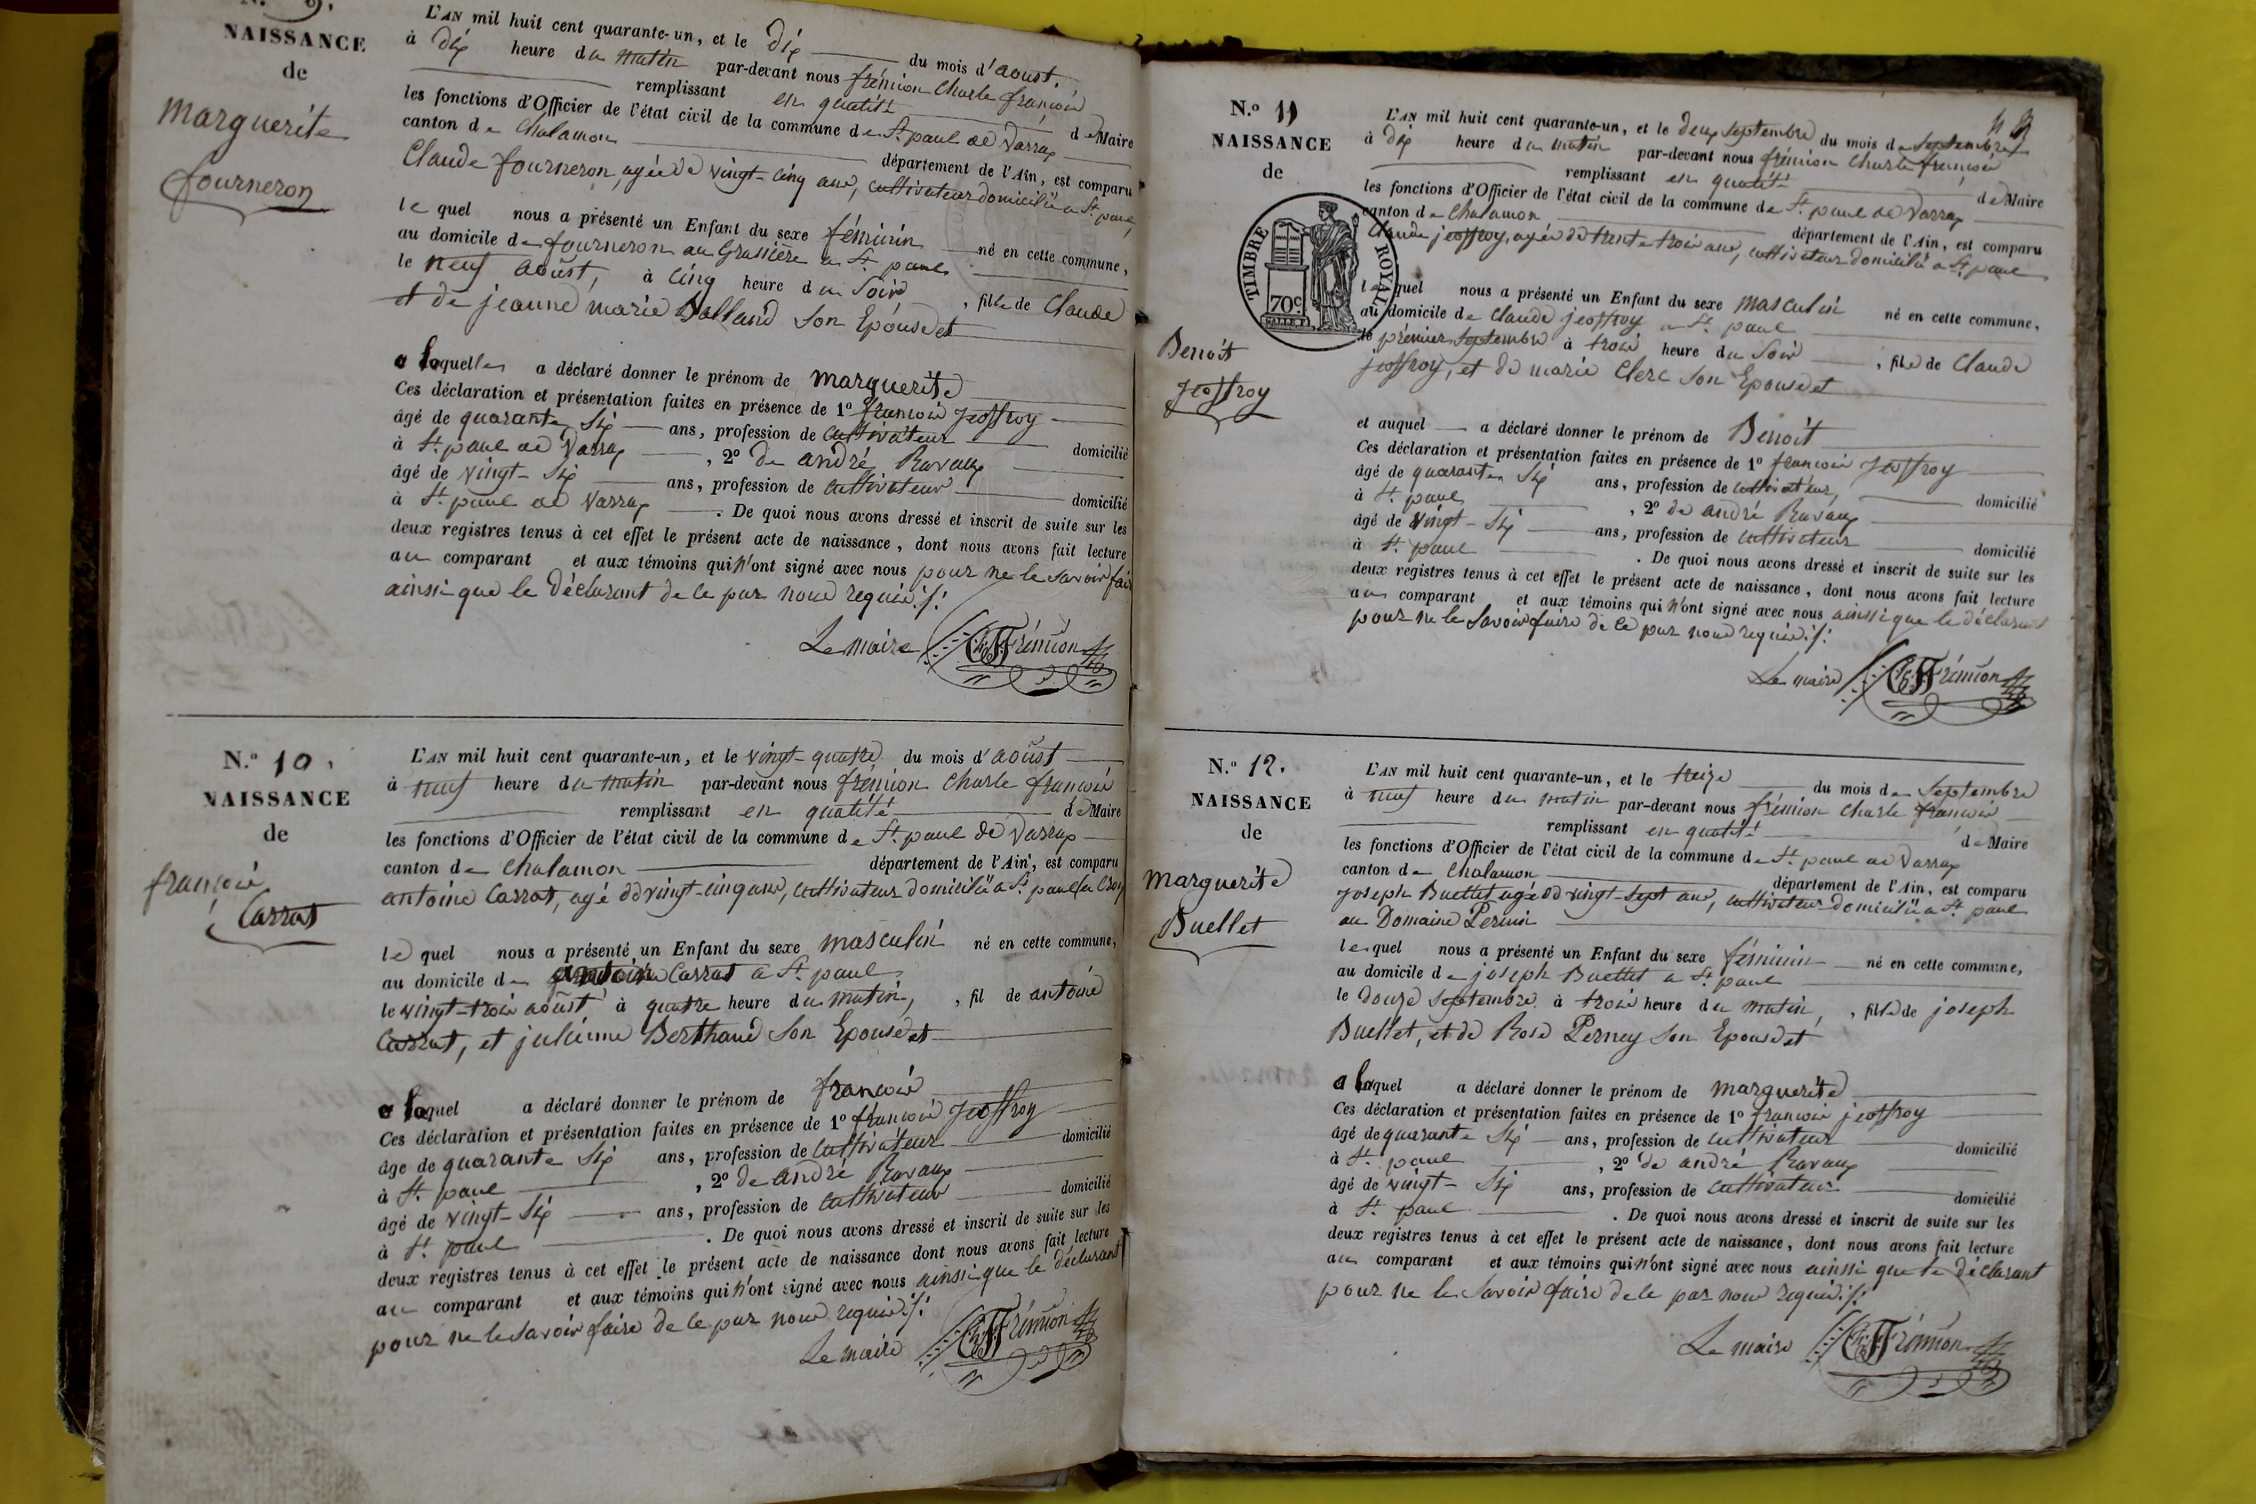 N.o 9.
NAISSANCE
de
marguerite
fourneron
L'AN mil huit cent quarante-un, et le dix du mois d'aoust.
à dix heure du matin par-devant nous frémion Charle françois
remplissant en qualité de Maire
les fonctions d'Officier de l'état civil de la commune de St. paul de Varrax
canton de Chalamon département de l'Ain, est comparu
Claude fourneron, agée de vingt-cinq ans, cultivateur domicilié a St. paul,
le quel nous a présenté un Enfant du sexe féminin né en cette commune,
au domicile de fourneron au Grassière a St. paul
le neuf août, à cinq heure du Soir, fille de Claude
et de jeanne marie Balland Son Epouse et
a laquelle a déclaré donner le prénom de marguerite
Ces déclaration et présentation faites en présence de 1o françois jeoffroy
âgé de quarante Six ans, profession de Cultivateur domicilié
à St. paul de Varrax, 2o de andré Ravaux
âgé de vingt-Six ans, profession de Cultivateur domicilié
à St. paul de Varrax. De quoi nous avons dressé et inscrit de suite sur les
deux registres tenus à cet effet le présent acte de naissance, dont nous avons fait lecture
au comparant et aux témoins qui n'ont signé avec nous pour ne le Savoir faire
ainsi que le déclarant de ce par nous requis ./.
Le maire Ch. F. Frémion
N.o 10.
NAISSANCE
de
françois
Carrat
L'AN mil huit cent quarante-un, et le vingt-quatre du mois d'août
à neuf heure du matin par-devant nous frémion Charle françois
remplissant en qualité de Maire
les fonctions d'Officier de l'état civil de la commune de St. paul de Varrax
canton de Chalamon département de l'Ain, est comparu
antoine Carrat, agé de vingt-cinq ans, Cultivateur domicilié a St. paul
le quel nous a présenté un Enfant du sexe masculin né en cette commune,
au domicile de antoine Carrat a St. paul
le vingt-trois août à quatre heure du matin, fil de antoine
Carrat, et julienne Berthaud Son Epouse et
a laquel a déclaré donner le prénom de françois
Ces déclaration et présentation faites en présence de 1o françois jeoffroy
âge de quarante Six ans, profession de Cultivateur domicilié
à St. paul, 2o de andré Ravaux
âgé de vingt-Six ans, profession de Cultivateur domicilié
à St. paul. De quoi nous avons dressé et inscrit de suite sur les
deux registres tenus à cet effet le présent acte de naissance dont nous avons fait lecture
au comparant et aux témoins qui n'ont signé avec nous ainsi que le déclarant
pour ne le Savoir faire de ce par nous requis ./.
Le maire Ch. F. Frémion
N.o 11
NAISSANCE
de
TIMBRE ROYAL
70c
Benoit
jeoffroy
L'AN mil huit cent quarante-un, et le deux septembre du mois de Septembre
à dix heure du matin par-devant nous frémion Charle françois
remplissant en qualité de Maire
les fonctions d'Officier de l'état civil de la commune de St. paul de Varrax
canton de Chalamon département de l'Ain, est comparu
Claude jeoffroy, agée de trente trois ans, cultivateur domicilié a St. paul
lequel nous a présenté un Enfant du sexe masculin né en cette commune,
au domicile de Claude jeoffroy a St. paul
le prémier Septembre à trois heure du Soir, fil de de Claude
jeoffroy, et de marie Clerc Son Epouse et
et auquel a déclaré donner le prénom de Benoit
Ces déclaration et présentation faites en présence de 1o françois jeoffroy
âgé de quarante Six ans, profession de Cultivateur, domicilié
à St. paul, 2o de andré Ravaux
âgé de vingt-Six ans, profession de Cultivateur domicilié
à St. paul. De quoi nous avons dressé et inscrit de suite sur les
deux registres tenus à cet effet le présent acte de naissance, dont nous avons fait lecture
au comparant et aux témoins qui n'ont signé avec nous ainsi que le déclarant
pour ne le Savoir faire de ce par nous requis ./.
Le maire Ch. F. Frémion
N.o 12.
NAISSANCE
de
marguerite
Buellet
L'AN mil huit cent quarante-un, et le treize du mois de Septembre
à neuf heure du matin par-devant nous frémion Charle françois
remplissant en qualité de Maire
les fonctions d'Officier de l'état civil de la commune de St. paul de Varrax
canton de Chalamon département de l'Ain, est comparu
joseph Buellet agée de vingt-Sept ans, cultivateur domicilié a St. paul
au Domaine
lequel nous a présenté un Enfant du sexe féminin né en cette commune,
au domicile de joseph Buellet a St. paul
le douze Septembre à trois heure du matin, fille de joseph
Buellet, et de Rose Perney Son Epouse et
a laquel a déclaré donner le prénom de marguerite
Ces déclaration et présentation faites en présence de 1o françois jeoffroy
âgé de quarante Six ans, profession de Cultivateur domicilié
à St. paul, 2o de andré Ravaux
âgé de vingt-Six ans, profession de Cultivateur domicilié
à St. paul. De quoi nous avons dressé et inscrit de suite sur les
deux registres tenus à cet effet le présent acte de naissance, dont nous avons fait lecture
au comparant et aux témoins qui n'ont signé avec nous ainsi que le déclarant
pour ne le Savoir faire de ce par nous requis ./.
Le maire Ch. F. Frémion